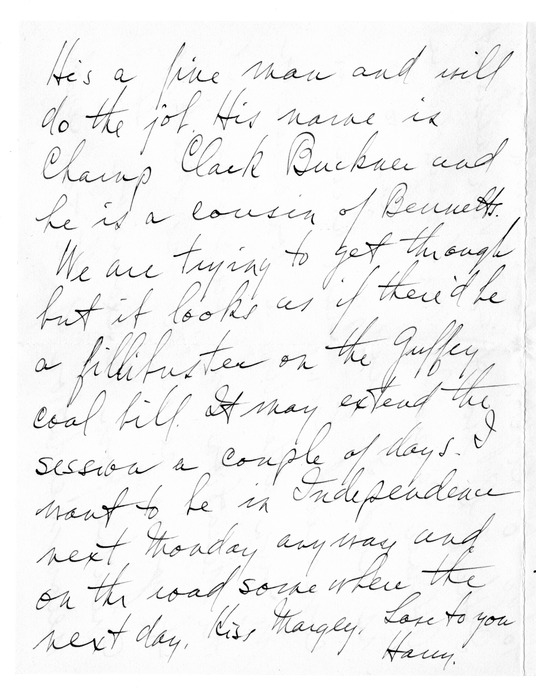 He's a fine man and will
do the job. His name is
Champ Clark Buckner and
he is a cousin of Bennett's.
We are trying to get through
but it looks as if there'd be
a fillibuster on the Guffey
coal bill. It may extend the
session a couple of days. I
want to be in Independence
next Monday anyway and
on the road somewhere the
next day. Kiss Margey. Love to you
Harry.